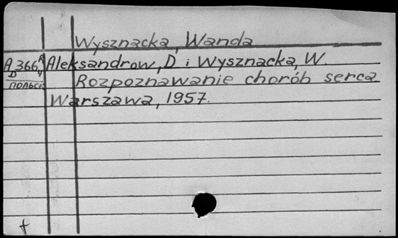 Wysznacka, Wanda
A 366 Aleksandrow, D i Wysznacka, W.
D Rozpoznawanie chorób serca
Warszawa, 1957.